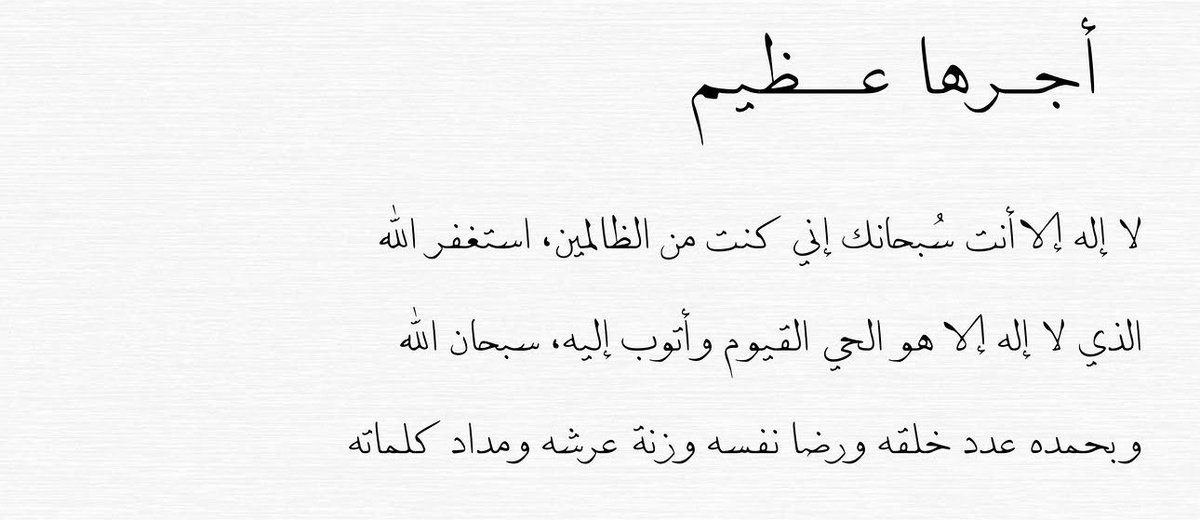 أجرها عظيم
لا إله إلا أنت سُبحانك إني كنت من الظالمين، استغفر الله
الذي لا إله إلا هو الحي القيوم وأتوب إليه، سبحان الله
وبحمده عدد خلقه ورضا نفسه وزنة عرشه ومداد كلماته